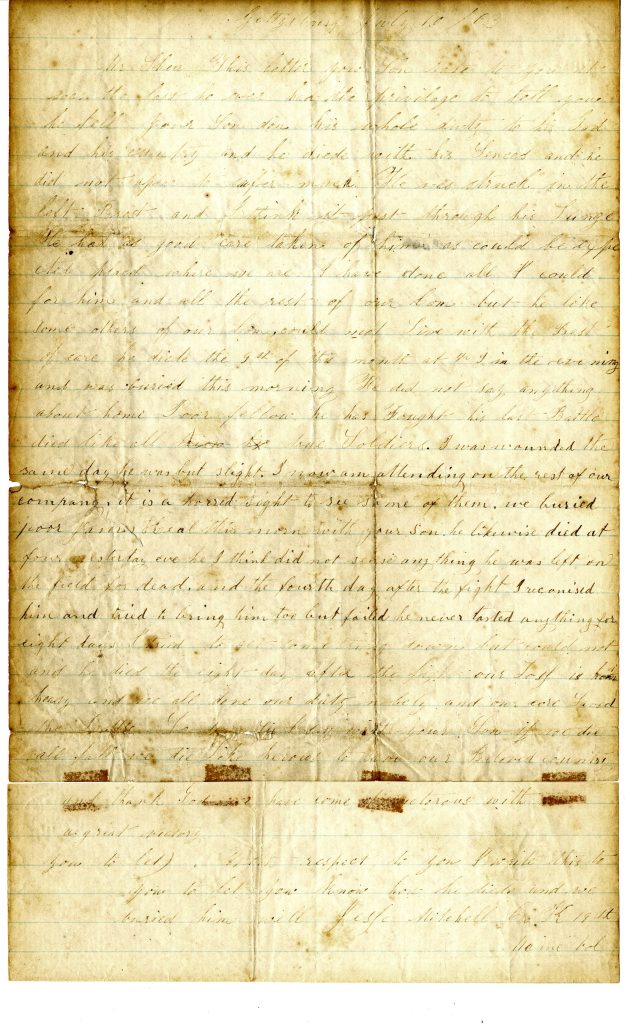 Gettysburg July 10 / 63
Mr Shon This letter you Son said to you
the last he ever had the privilage to tell you
he fell your Son don his whole duty to his God
and his country and he diede with his Sences and he
did not apear to sufer much He was struck in the
left Brest and I think it past through his Lungs
He had as good care taken of him as could be expe
cted where we are I have done all I could
for him and all the rest of our Com but he like
some others of our Com could not Live with the Best
of care he diede the 9th of this month at in the evening
and was buried this morning He did not say anything
about home Poor fellow he has Fought his last Battle
died like all true Soldiers. I was wounded the
same day he was but slight. I now am attending on the rest of our
company, it is a horred sight to see some of them. we buried
poor this morn with your son. he likewise died at
four yesterday eve he I think did not sense any thing he was left on
the field for dead. and the fourth day after the fight I reconised
him and tried to bring him too but failed he never tasted anything for
eight days I tried to get some thing down but would not
and he died the eight day after the fight our Loss is
heavy and we all done our duty nobely and our core Saved
the your Son if we die
all fall we die like heroes to save our Beloved country
and thank God we have come of victorous with
a great victory
you to let) respect to you I write this to
you to let you know how he diede and we
buried him well Jesse Mitchell Co K 19th
Maine vol